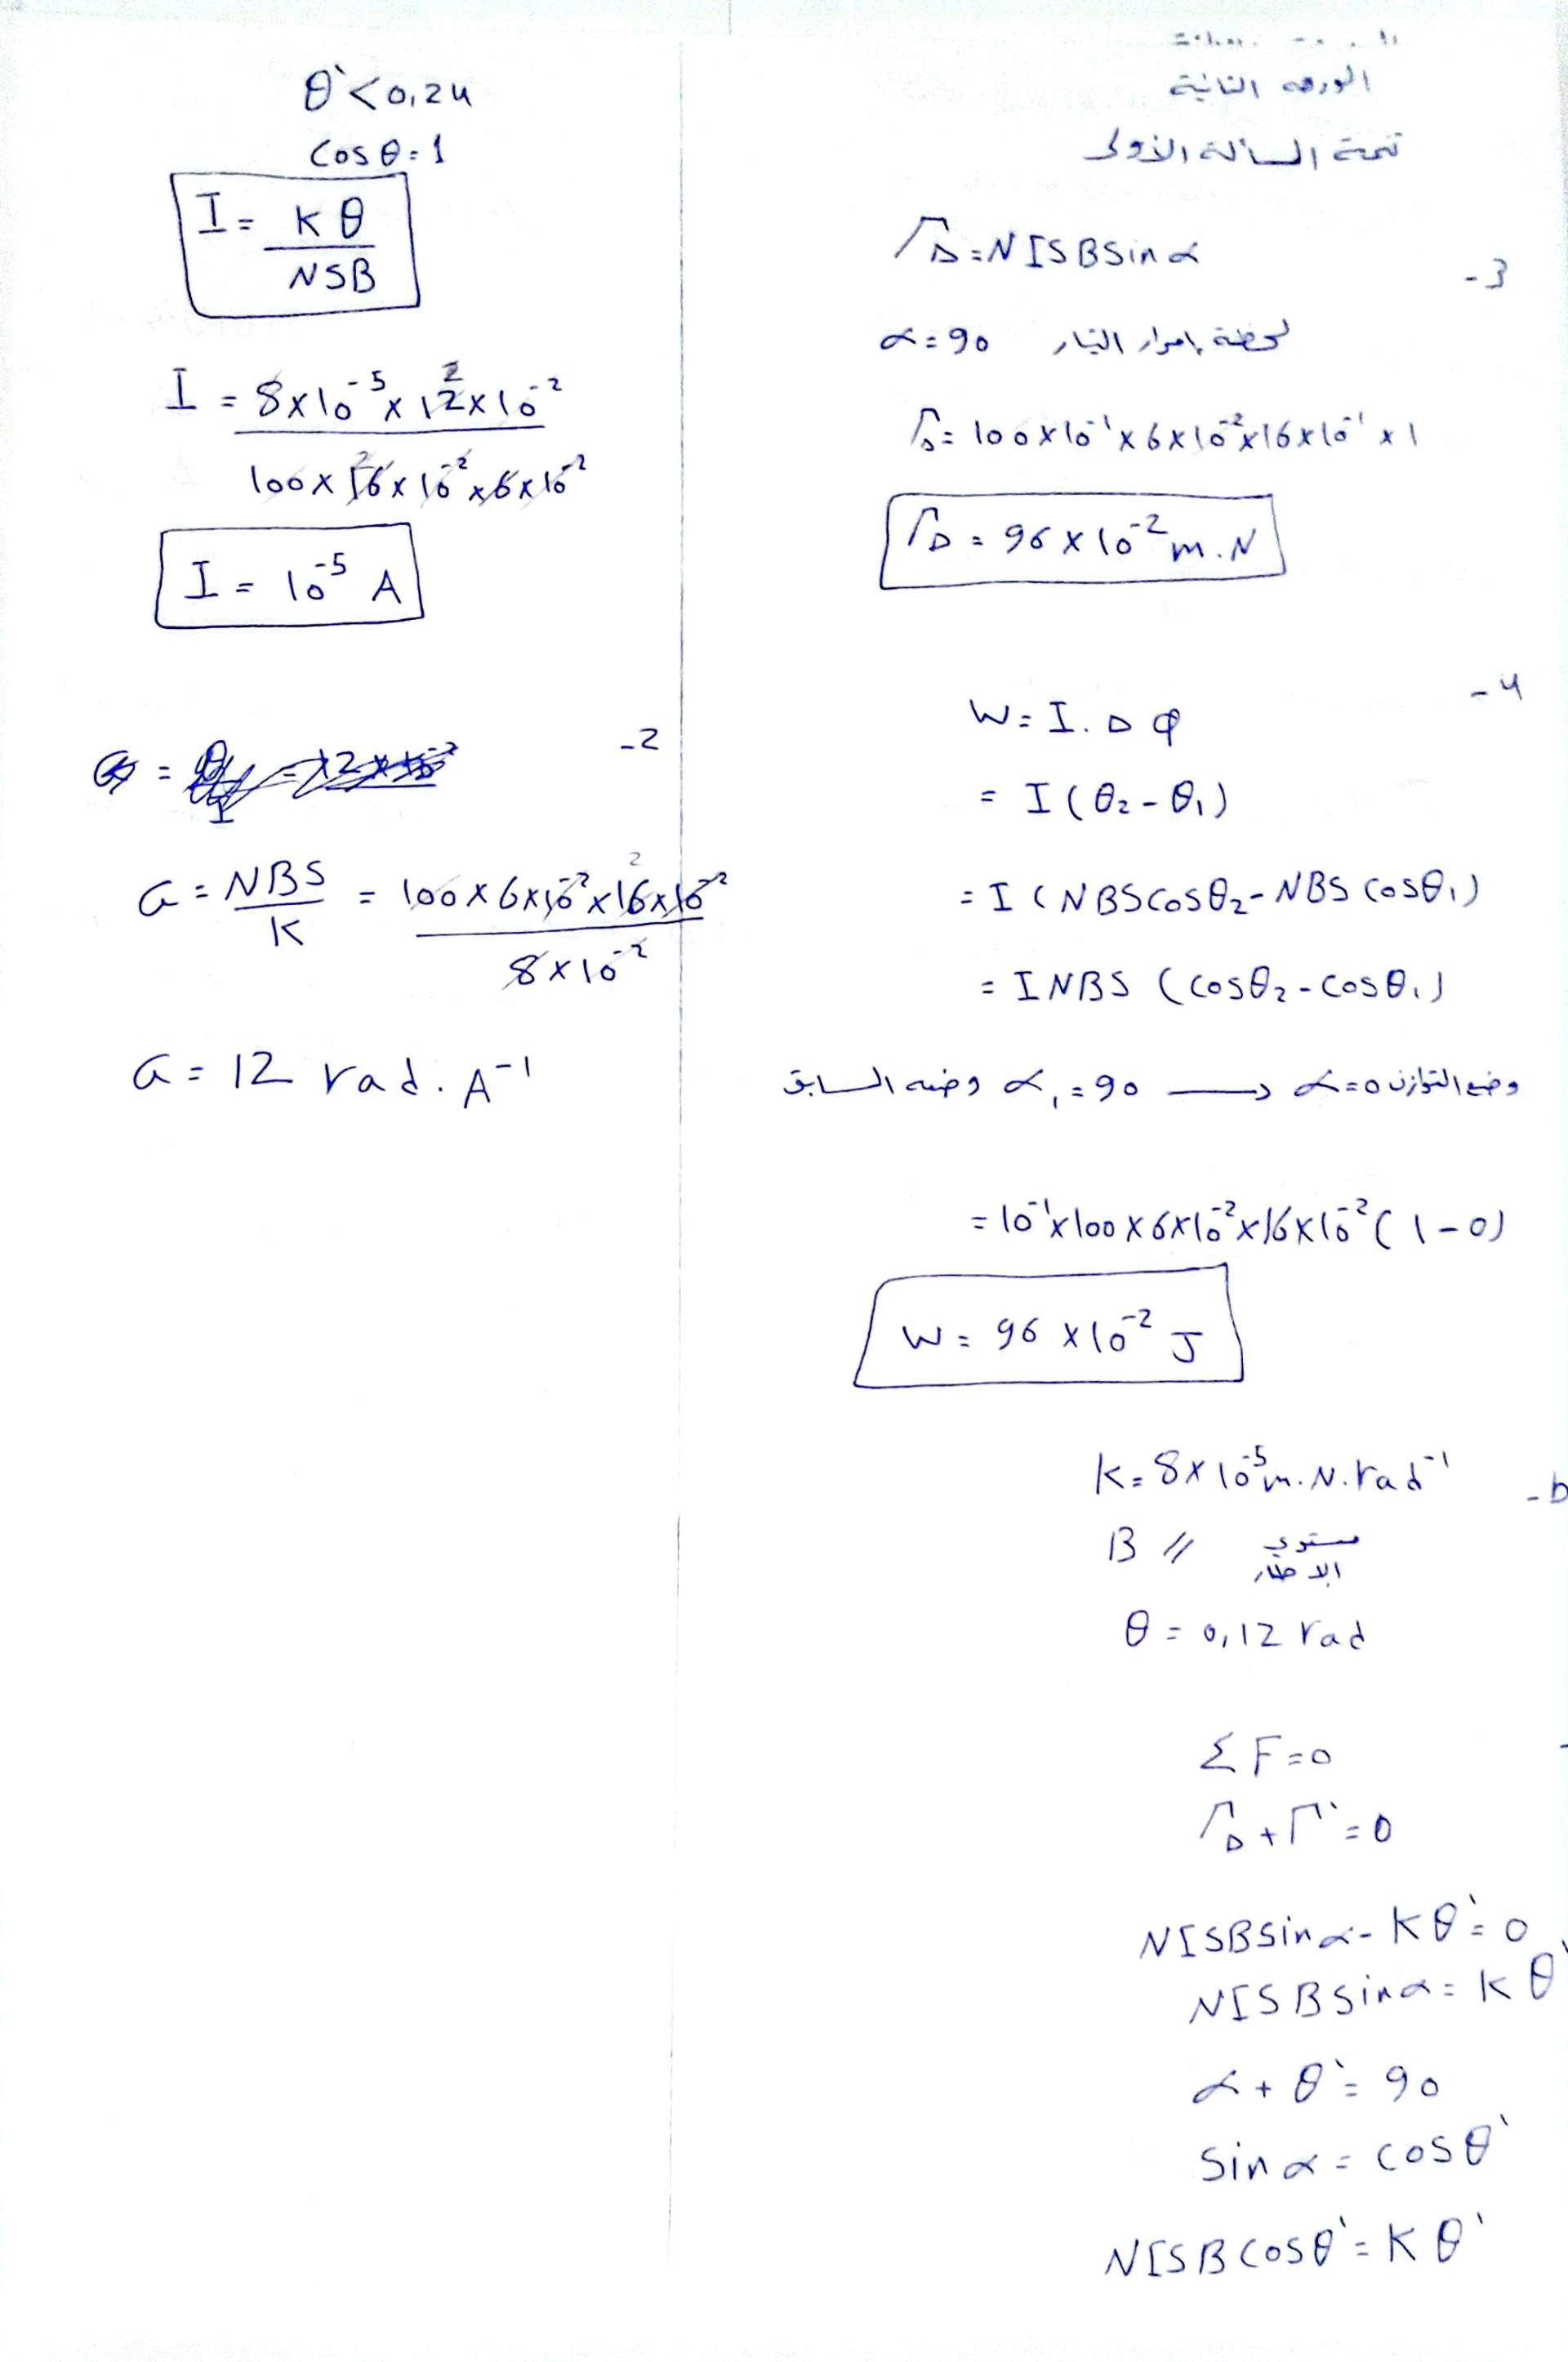 الورقه الثانية
تتمة المسألة الأولى
3-
Γ_Δ = NISB sin α
لحظة إمرار التيار α = 90
Γ_Δ = 100 × 10⁻¹ × 6 × 10⁻² × 16 × 10⁻¹ × 1
Γ_Δ = 96 × 10⁻² m.N
4-
W = I. Δ φ
= I (θ₂ - θ₁)
= I (NBS cos θ₂ - NBS cos θ₁)
= INBS (cos θ₂ - cos θ₁)
وضع التوازن α = 0 ← α₁ = 90 وضعه السابق
= 10⁻¹ × 100 × 6 × 10⁻² × 16 × 10⁻² (1 - 0)
W = 96 × 10⁻² J
b-
K = 8 × 10⁻⁵ m.N.rad⁻¹
B // مستوي الاطار
θ = 0,12 rad
Σ F = 0
Γ_Δ + Γ` = 0
NISB sin α - K θ` = 0
NISB sin α = K θ`
α + θ` = 90
sin α = cos θ`
NISB cos θ` = K θ`
θ` < 0,24
cos θ = 1
I = K θ / NSB
I = 8 × 10⁻⁵ × 12 × 10⁻² / 100 × 16 × 10⁻² × 6 × 10⁻²
I = 10⁻⁵ A
2-
G = NBS / K = 100 × 6 × 10⁻² × 16 × 10⁻² / 8 × 10⁻²
G = 12 rad. A⁻¹